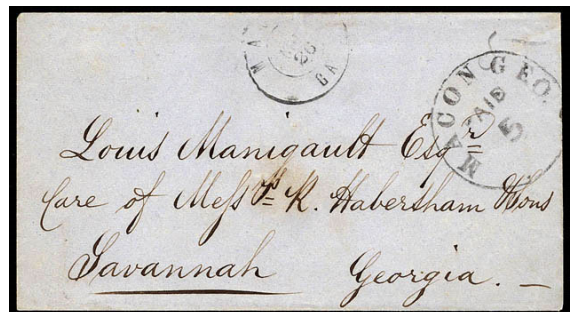 MA GA
26
MACON GEO.
PAID
5
Louis Manigault Esqr
Care of Messrs R. Habersham & Sons
Savannah Georgia. —